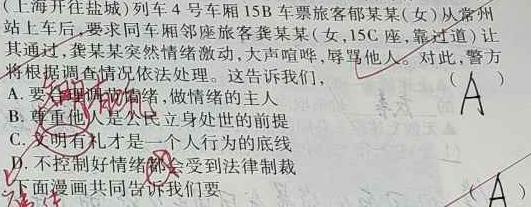 (上海开往盐城)列车4号车厢15B车票旅客郁某某(女)从常州
站上车后,要求同车厢邻座旅客龚某某(女,15C座,靠过道)让
其通过,龚某某突然情绪激动,大声喧哗,辱骂他人。对此,警方
将根据调查情况依法处理。这告诉我们, ( A )
A. 要合理调节情绪,做情绪的主人
B. 尊重他人是公民立身处世的前提
C. 文明有礼才是一个人行为的底线
D. 不控制好情绪都会受到法律制裁
下面漫画共同告诉我们要 ( A )